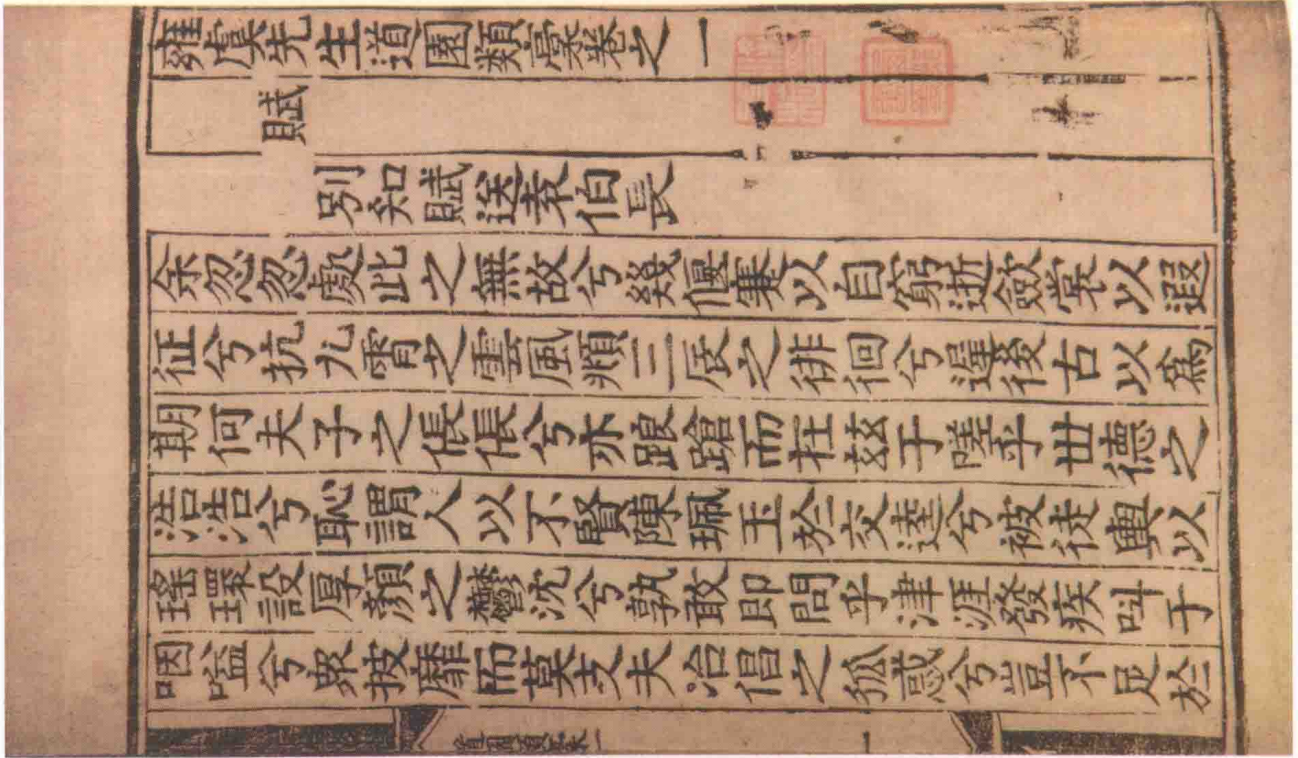 雍虞先生道園類藁卷之一
賦
別知賦送袁伯長
余忽忽處此之無故兮幾僈棄以自窮逝斂裳以遐
征兮抗九霄之雲風頫三辰之徘徊兮遲後古以爲
期何夫子之倀倀兮亦踉蹌而在茲于嗟乎世德之
浩浩兮恥謂人以不賢陳珮玉於交逵兮被徒輿以
瑤環設厚顏之鬱沈兮孰敢即問乎津涯發疾叫于
咽嗌兮衆披靡而莫支夫冶倡之狐惑兮豈不足於